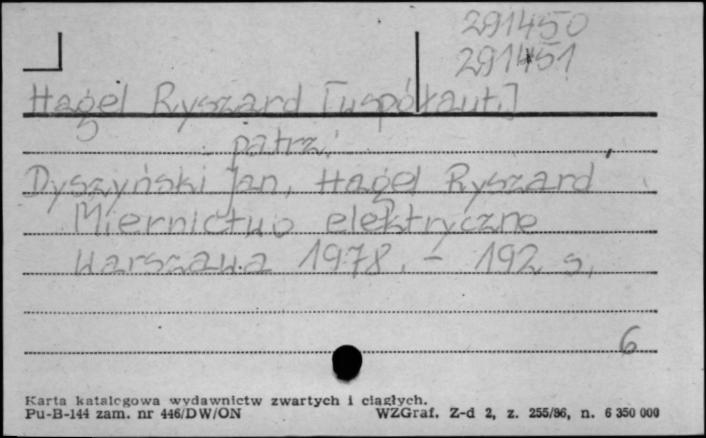 291450
291451
Hagel Ryszard [współaut.]
patrz:
Dyszyński Jan, Hagel Ryszard
Miernictwo elektryczne
Warszawa 1978. - 192 s.
6
Karta katalogowa wydawnictw zwartych i ciągłych.
Pu-B-144 zam. nr 446/DW/ON WZGraf. Z-d 2, z. 255/86, n. 6 350 000